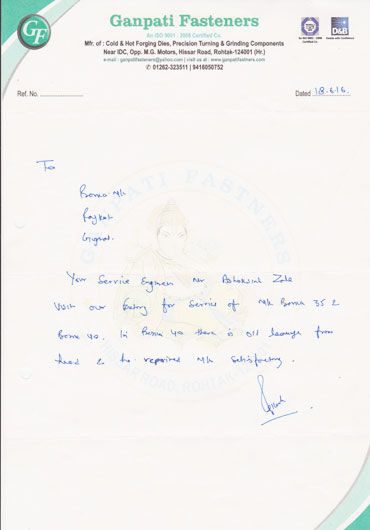 GF
Ganpati Fasteners
An ISO 9001 : 2008 Certified Co.
Mfr. of : Cold & Hot Forging Dies, Precision Turning & Grinding Components
Near IDC, Opp. M.G. Motors, Hissar Road, Rohtak-124001 (Hr.)
e-mail : ganpatifasteners@yahoo.com | visit us at : www.ganpatifastners.com
✆ 01262-323511 | 9416050752
D&B
Ref. No.
Dated 18.6.16.
To
Borna M/c
Rajkot
Gujrat.
GANPATI FASTENERS
Your Service Engineer Mr Zala
Visit our for Service of M/c Borna 35 &
Borna 40. In Borna 40 there is oil leakage from
head & he repaired M/c Satisfactory.
ROAD, ROHTAK